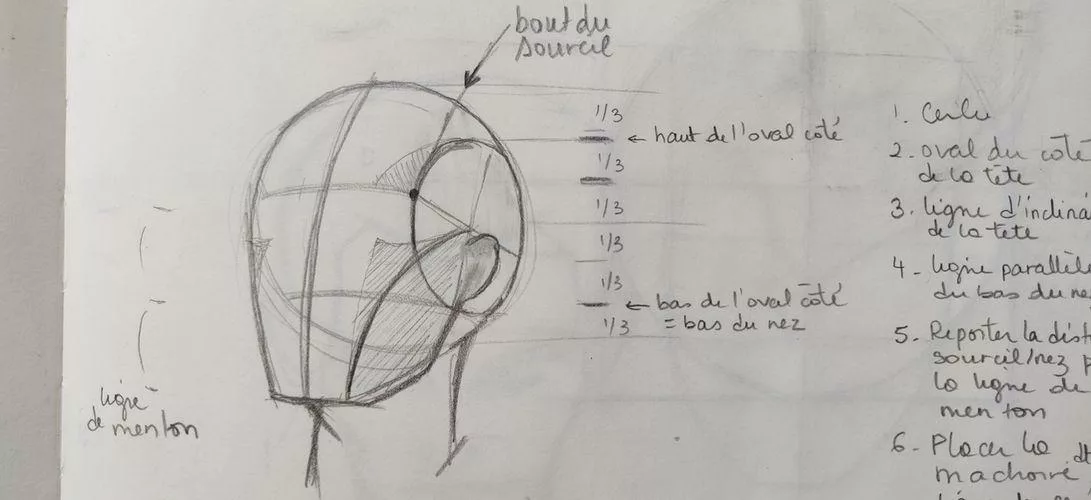 bout du
sourcil
1/3
← haut de l'oval côté
1/3
1/3
1/3
1/3
← bas de l'oval côté
1/3 = bas du nez
ligne
de menton
1. Cercle
2. oval du coté
de la tête
3. ligne d'inclina
de la tete
4 - ligne parallèle
du bas du ne
5. Reporter la dist
sourcil/nez
la ligne de
menton
6 - Placer la
machoire